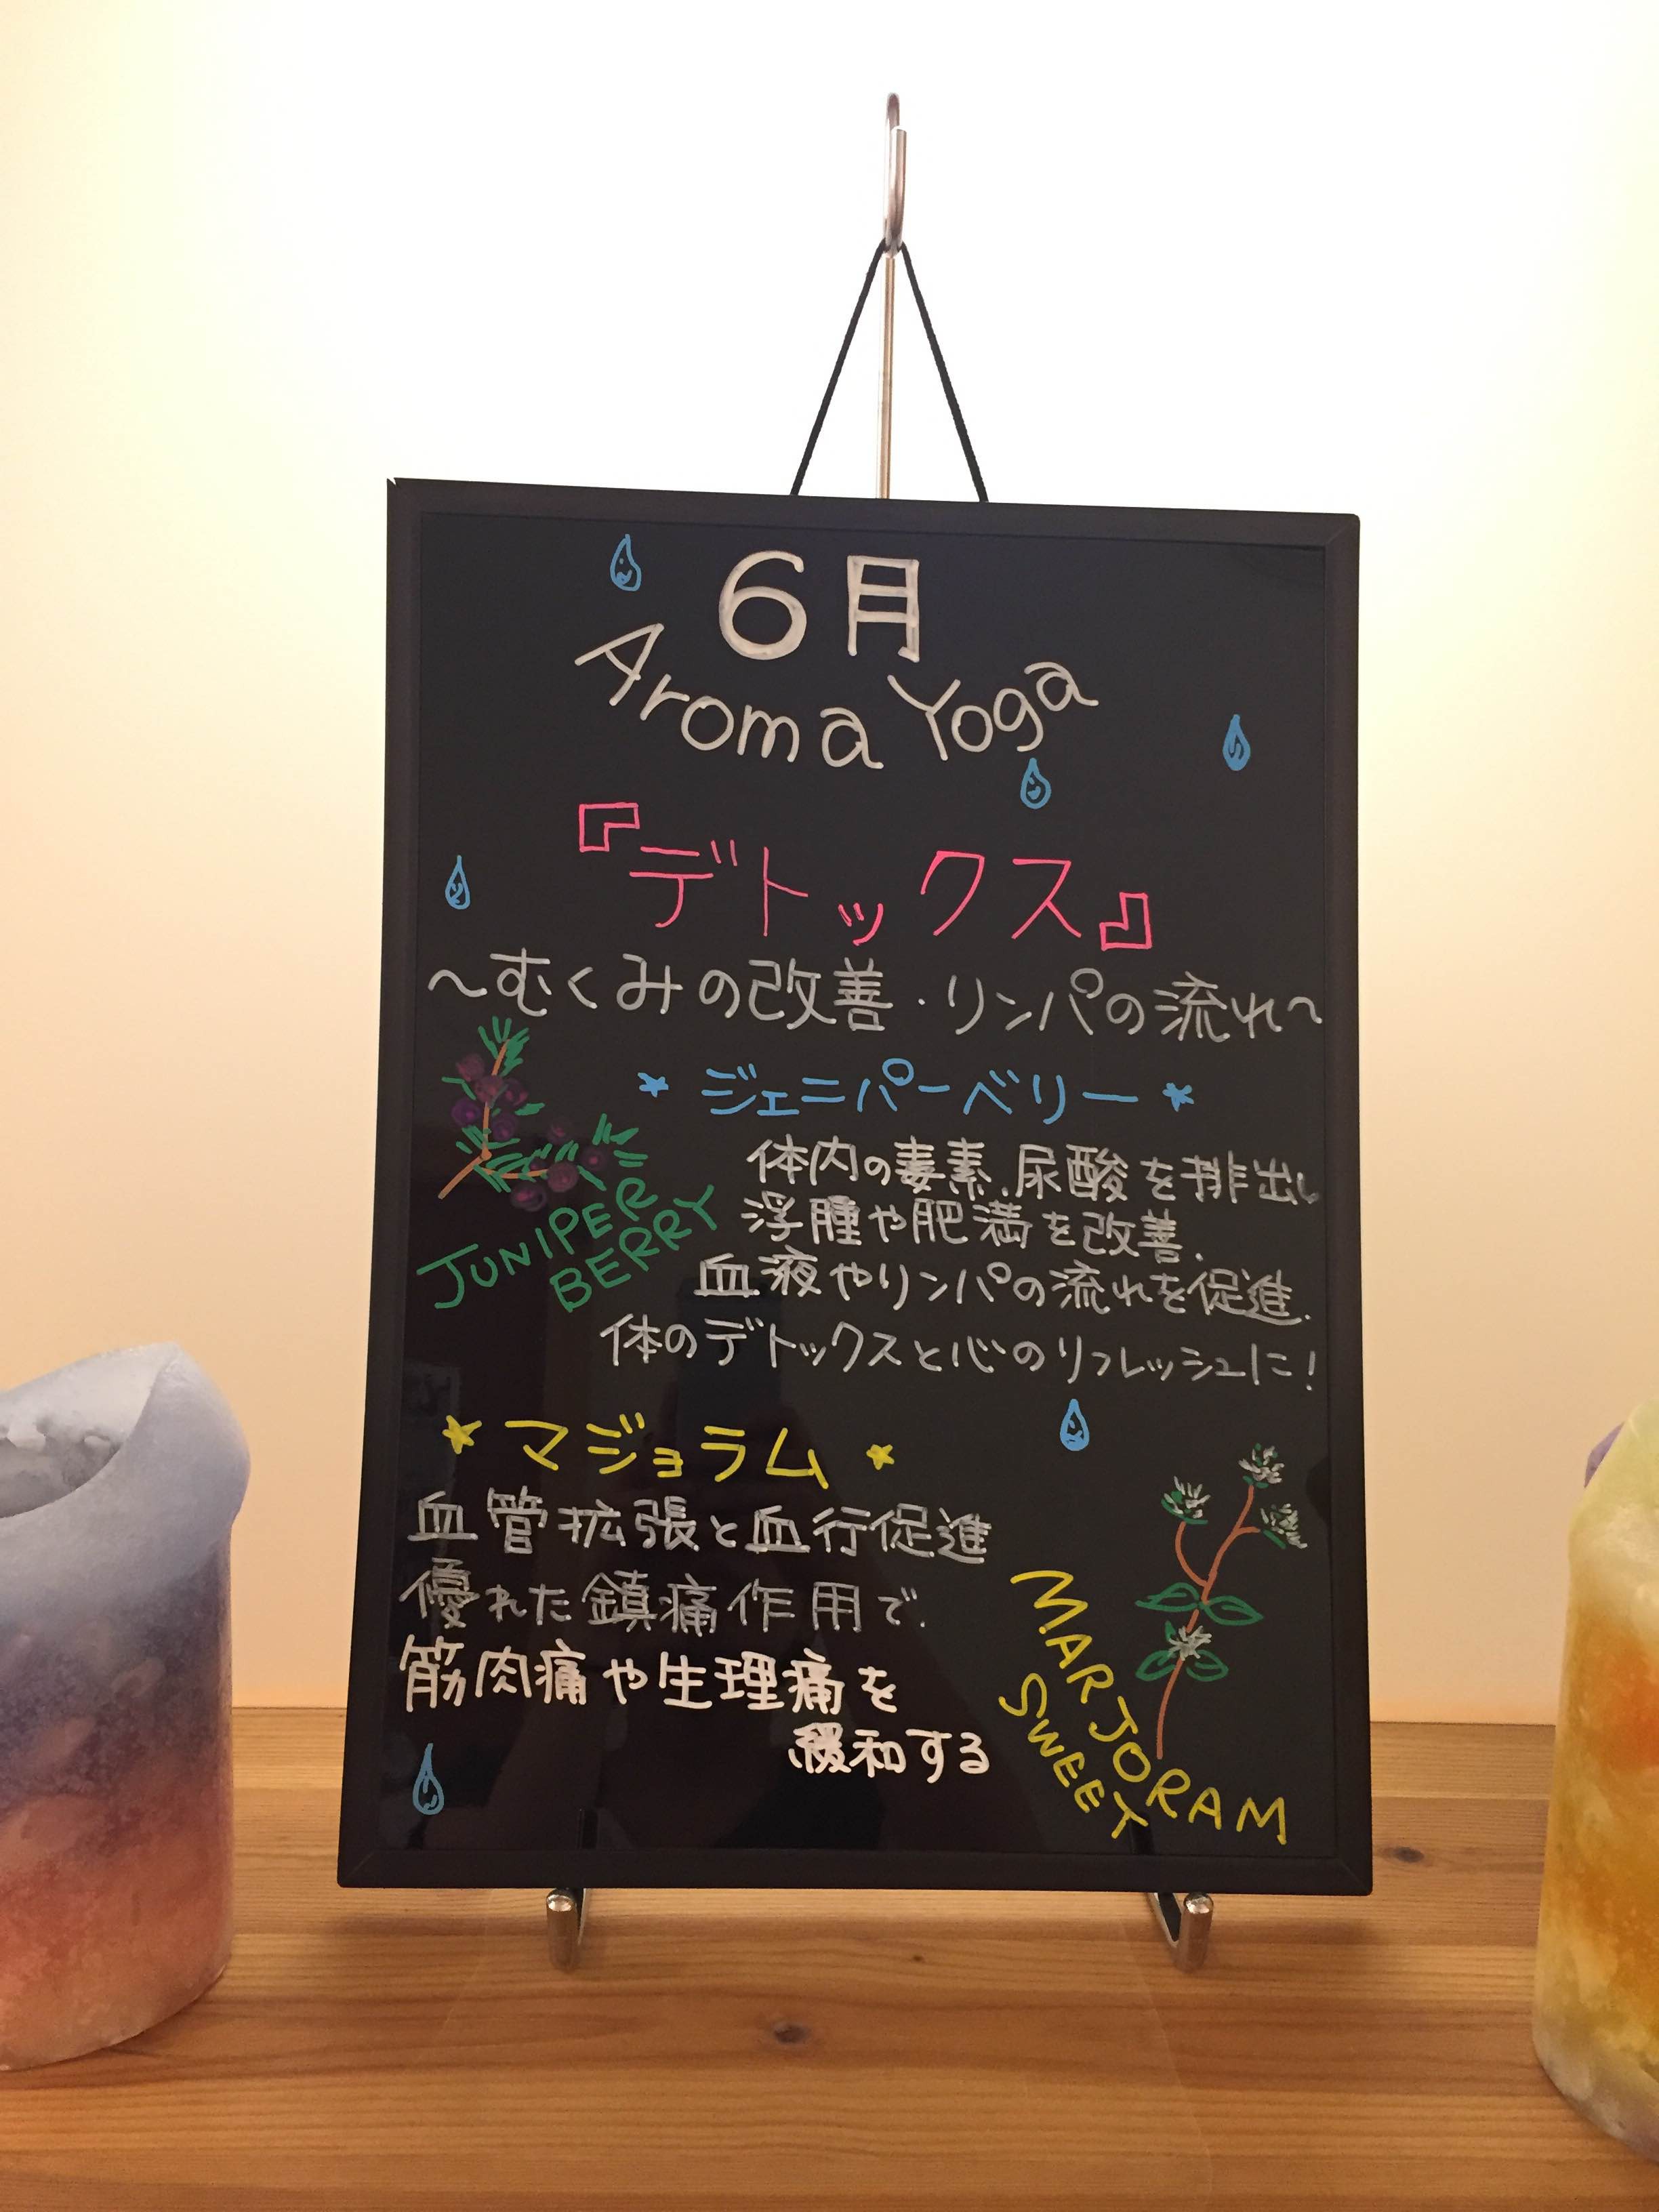 6月
Aroma Yoga
『デトックス』
～むくみの改善・リンパの流れ～
* ジェニパーベリー *
体内の毒素、尿酸を排出し
浮腫や肥満を改善、
血液やリンパの流れを促進、
体のデトックスと心のリフレッシュに!
JUNIPER
BERRY
* マジョラム *
血管拡張と血行促進
優れた鎮痛作用で、
筋肉痛や生理痛を
緩和する
MARJORAM
SWEET